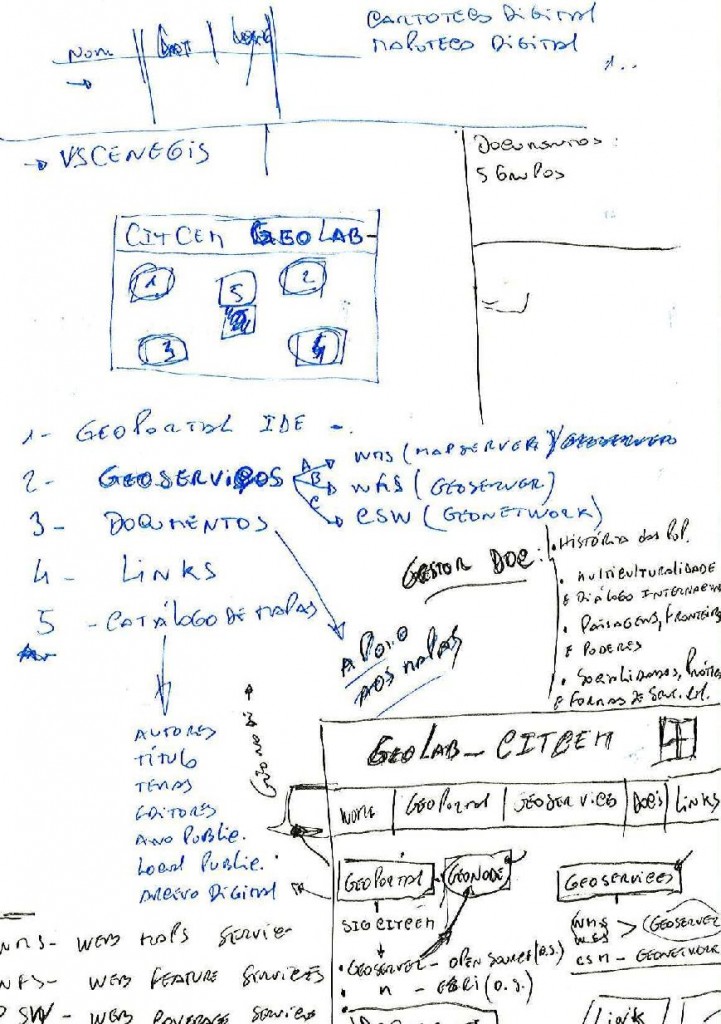 CARTOTECA DIGITAL
MAPOTECA DIGITAL
NOM
1..
→ VSCENEGIS
DOCUMENTOS:
5 GRUPOS
CITCEM GEOLAB-
1
2
5
3
4
1- GEOPORTAL IDE -.
2- GEOSERVIÇOS
A WMS (MAPSERVER)/GEOSERVER
B WFS (GEOSERVER)
C CSW (GEONETWORK)
3- DOCUMENTOS
4- LINKS
5 - CATÁLOGO DE MAPAS
GESTOR DOC:
• HISTÓRIA das POP.
• MULTICULTURALIDADE
E DIÁLOGO
• PAISAGENS, FRONTEIRAS
E PODERES
• SOCIABILIDADES,
E FORMAS DE
APOIO
AOS MAPAS
AUTORES
TÍTULO
TEMAS
EDITORES
ANO PUBLIC.
LOCAL PUBLIC.
ARQIVO DIGITAL
GEOLAB_CITCEM
HOME
GEOPORTAL
GEOSERVICES
DOCS
LINKS
GEOPORTAL - GEONODE
GEOSERVICES
SIGCITCEM
WMS
WFS > GEOSERVER
CSW - GEONETWORK
• GEOSERVER - OPEN SOURCE (O.S.)
• n - ESRI (O.S.)
WMS - WEB MAPS SERVICE
WFS - WEB FEATURE SERVICES
SW - WEB COVERAGE SERVICE
Link
Links